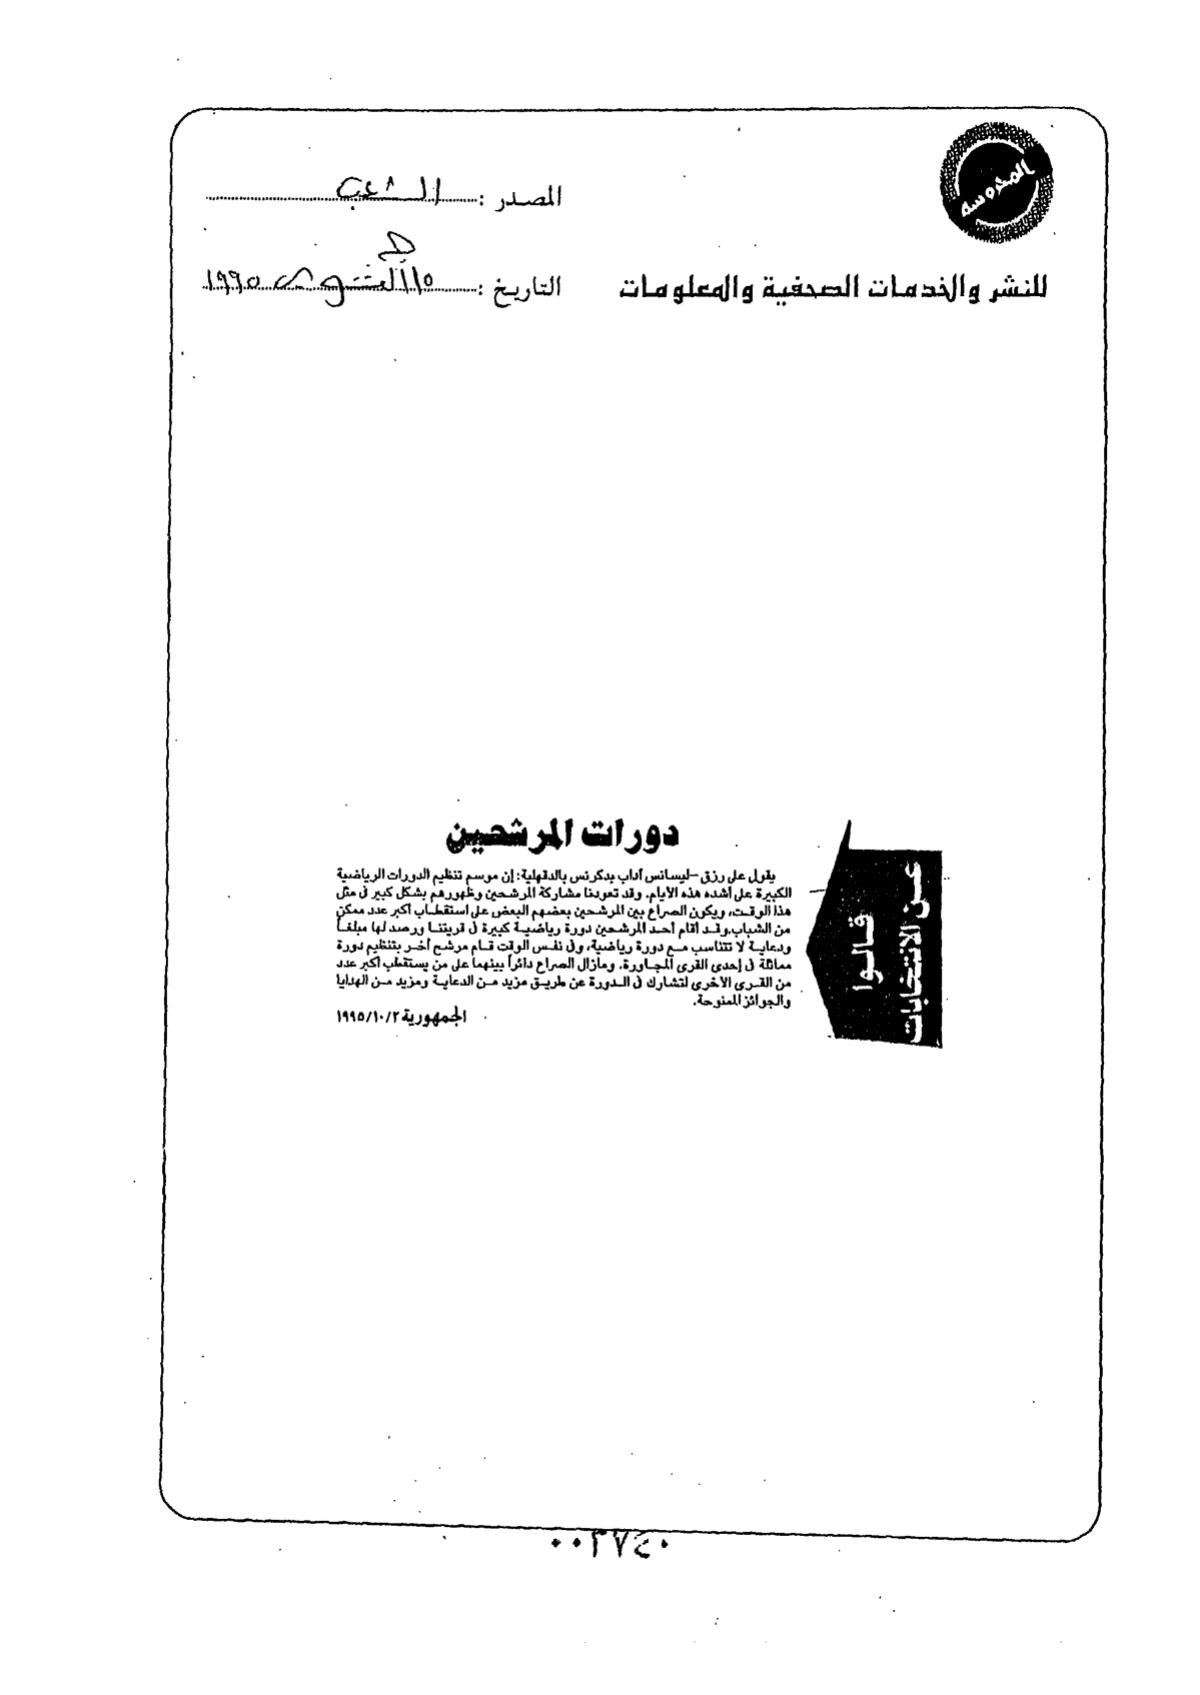 المحروسة
المصدر : الشعب
للنشر والخدمات الصحفية والمعلومات
التاريخ : ١٩٩٥
قالوا
عن الانتخابات
دورات المرشحين
يقول على رزق -ليسانس آداب بدكرنس بالدقهلية: إن موسم تنظيم الدورات الرياضية
الكبيرة على أشده هذه الأيام. وقد تعودنا مشاركة المرشحين وظهورهم بشكل كبير فى مثل
هذا الوقت، ويكون الصراع بين المرشحين بعضهم البعض على استقطاب أكبر عدد ممكن
من الشباب.وقد أقام أحد المرشحين دورة رياضية كبيرة فى قريتنا ورصد لها مبلغاً
ودعاية لا تتناسب مع دورة رياضية، وفى نفس الوقت قام مرشح آخر بتنظيم دورة
مماثلة فى إحدى القرى المجاورة. ومازال الصراع دائراً بينهما على من يستقطب أكبر عدد
من القرى الأخرى لتشارك فى الدورة عن طريق مزيد من الدعاية ومزيد من الهدايا
والجوائز الممنوحة.
الجمهورية ١٩٩٥/١٠/٢
٠٠٣٧٤٠